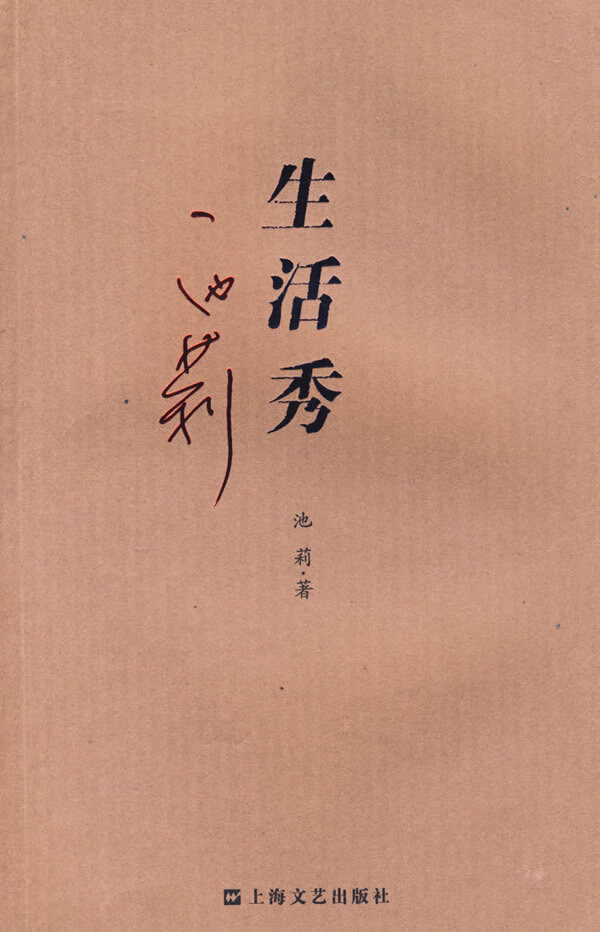 生活秀
池莉
池莉·著
上海文艺出版社